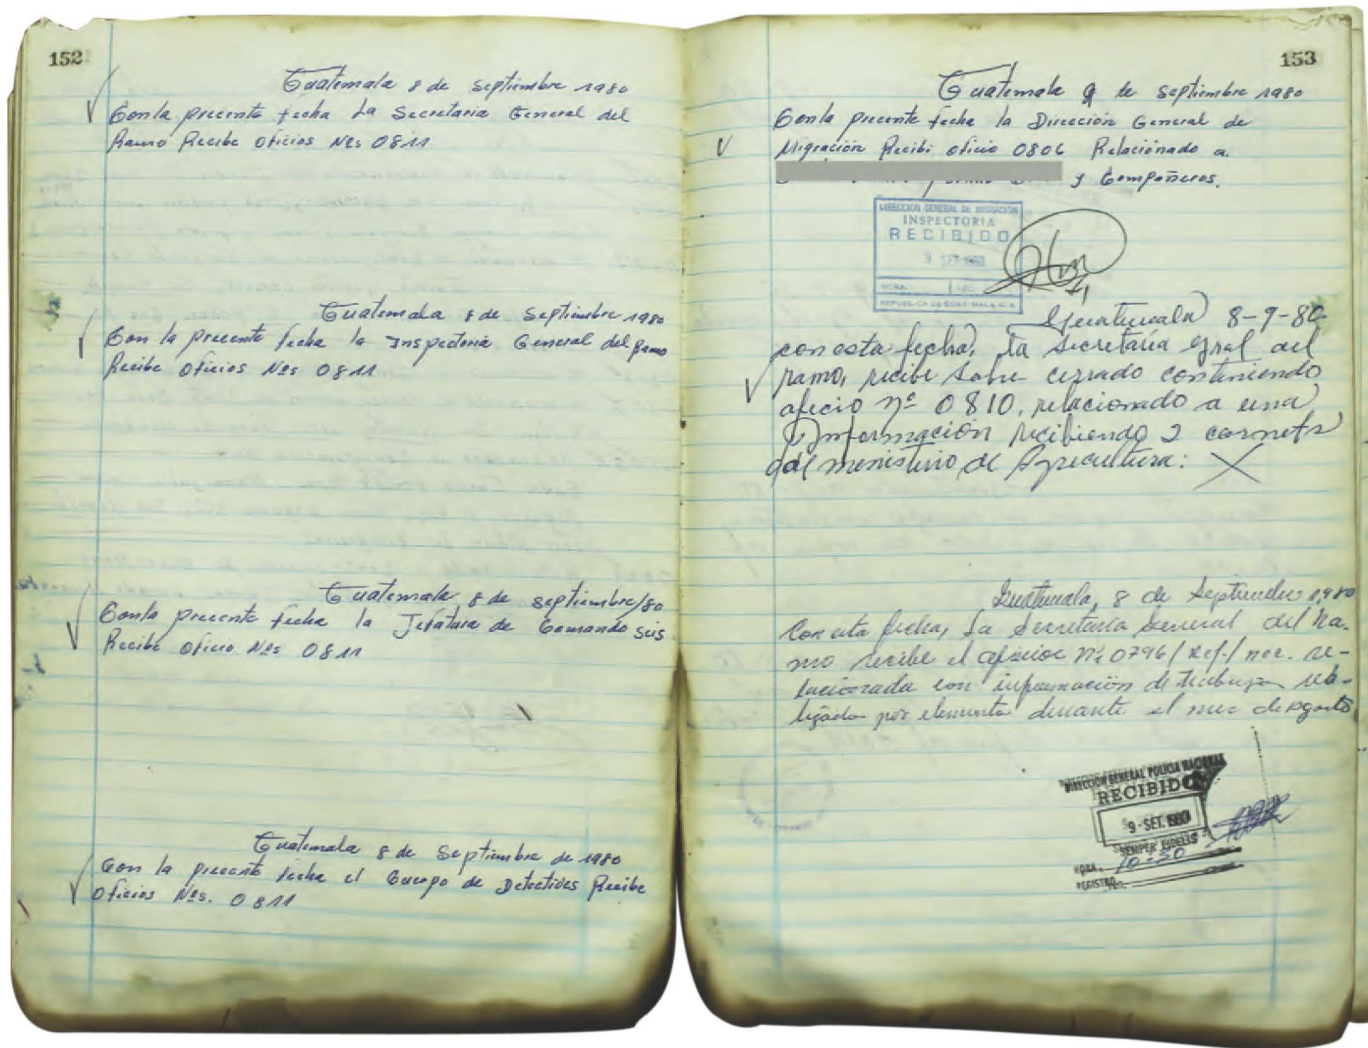 152
Guatemala 8 de Septiembre 1980
Con la precente fecha La Secretaria General del
Ramo Recibe Oficios Nos 0811
Guatemala 8 de Septiembre 1980
Con la precente fecha la Inspectoria General del Ramo
Recibe Oficios Nos 0811
Guatemala 8 de septiembre/80
Con la precente fecha la Jefatura de Comando seis
Recibe Oficio Nos 0811
Guatemala 8 de Septiembre de 1980
Con la precente fecha el Cuerpo de Detectives Recibe
Oficios Nos. 0811
153
Guatemala 9 de septiembre 1980
Con la precente fecha la Dirección General de
Migración Recibi oficio 0806 Relacionado a.
y Compañeros.
DIRECCION GENERAL DE MIGRACION
INSPECTORIA
RECIBIDO
9 SET 1980
HORA
REPUBLICA DE GUATEMALA, C. A.
Guatemala 8-9-80
con esta fecha, la Secretaría Gral del
ramo, recibe Sobre cerrado conteniendo
oficio nº 0810, relacionado a una
Información recibiendo 2 carnets
del menisterio de Agricultura:
Guatemala, 8 de Septiembre 1,980
Con esta fecha, La Secretaria General del Ra-
mo recibe el oficio Nº 0796/Ref/ re-
lacionada con información de trabajos rea-
lizados por elementos durante el mes de agosto
DIRECCION GENERAL POLICIA NACIONAL
RECIBIDO
9-SET. 1980
SEMPER FIDELIS
HORA 10-50
REGISTRO